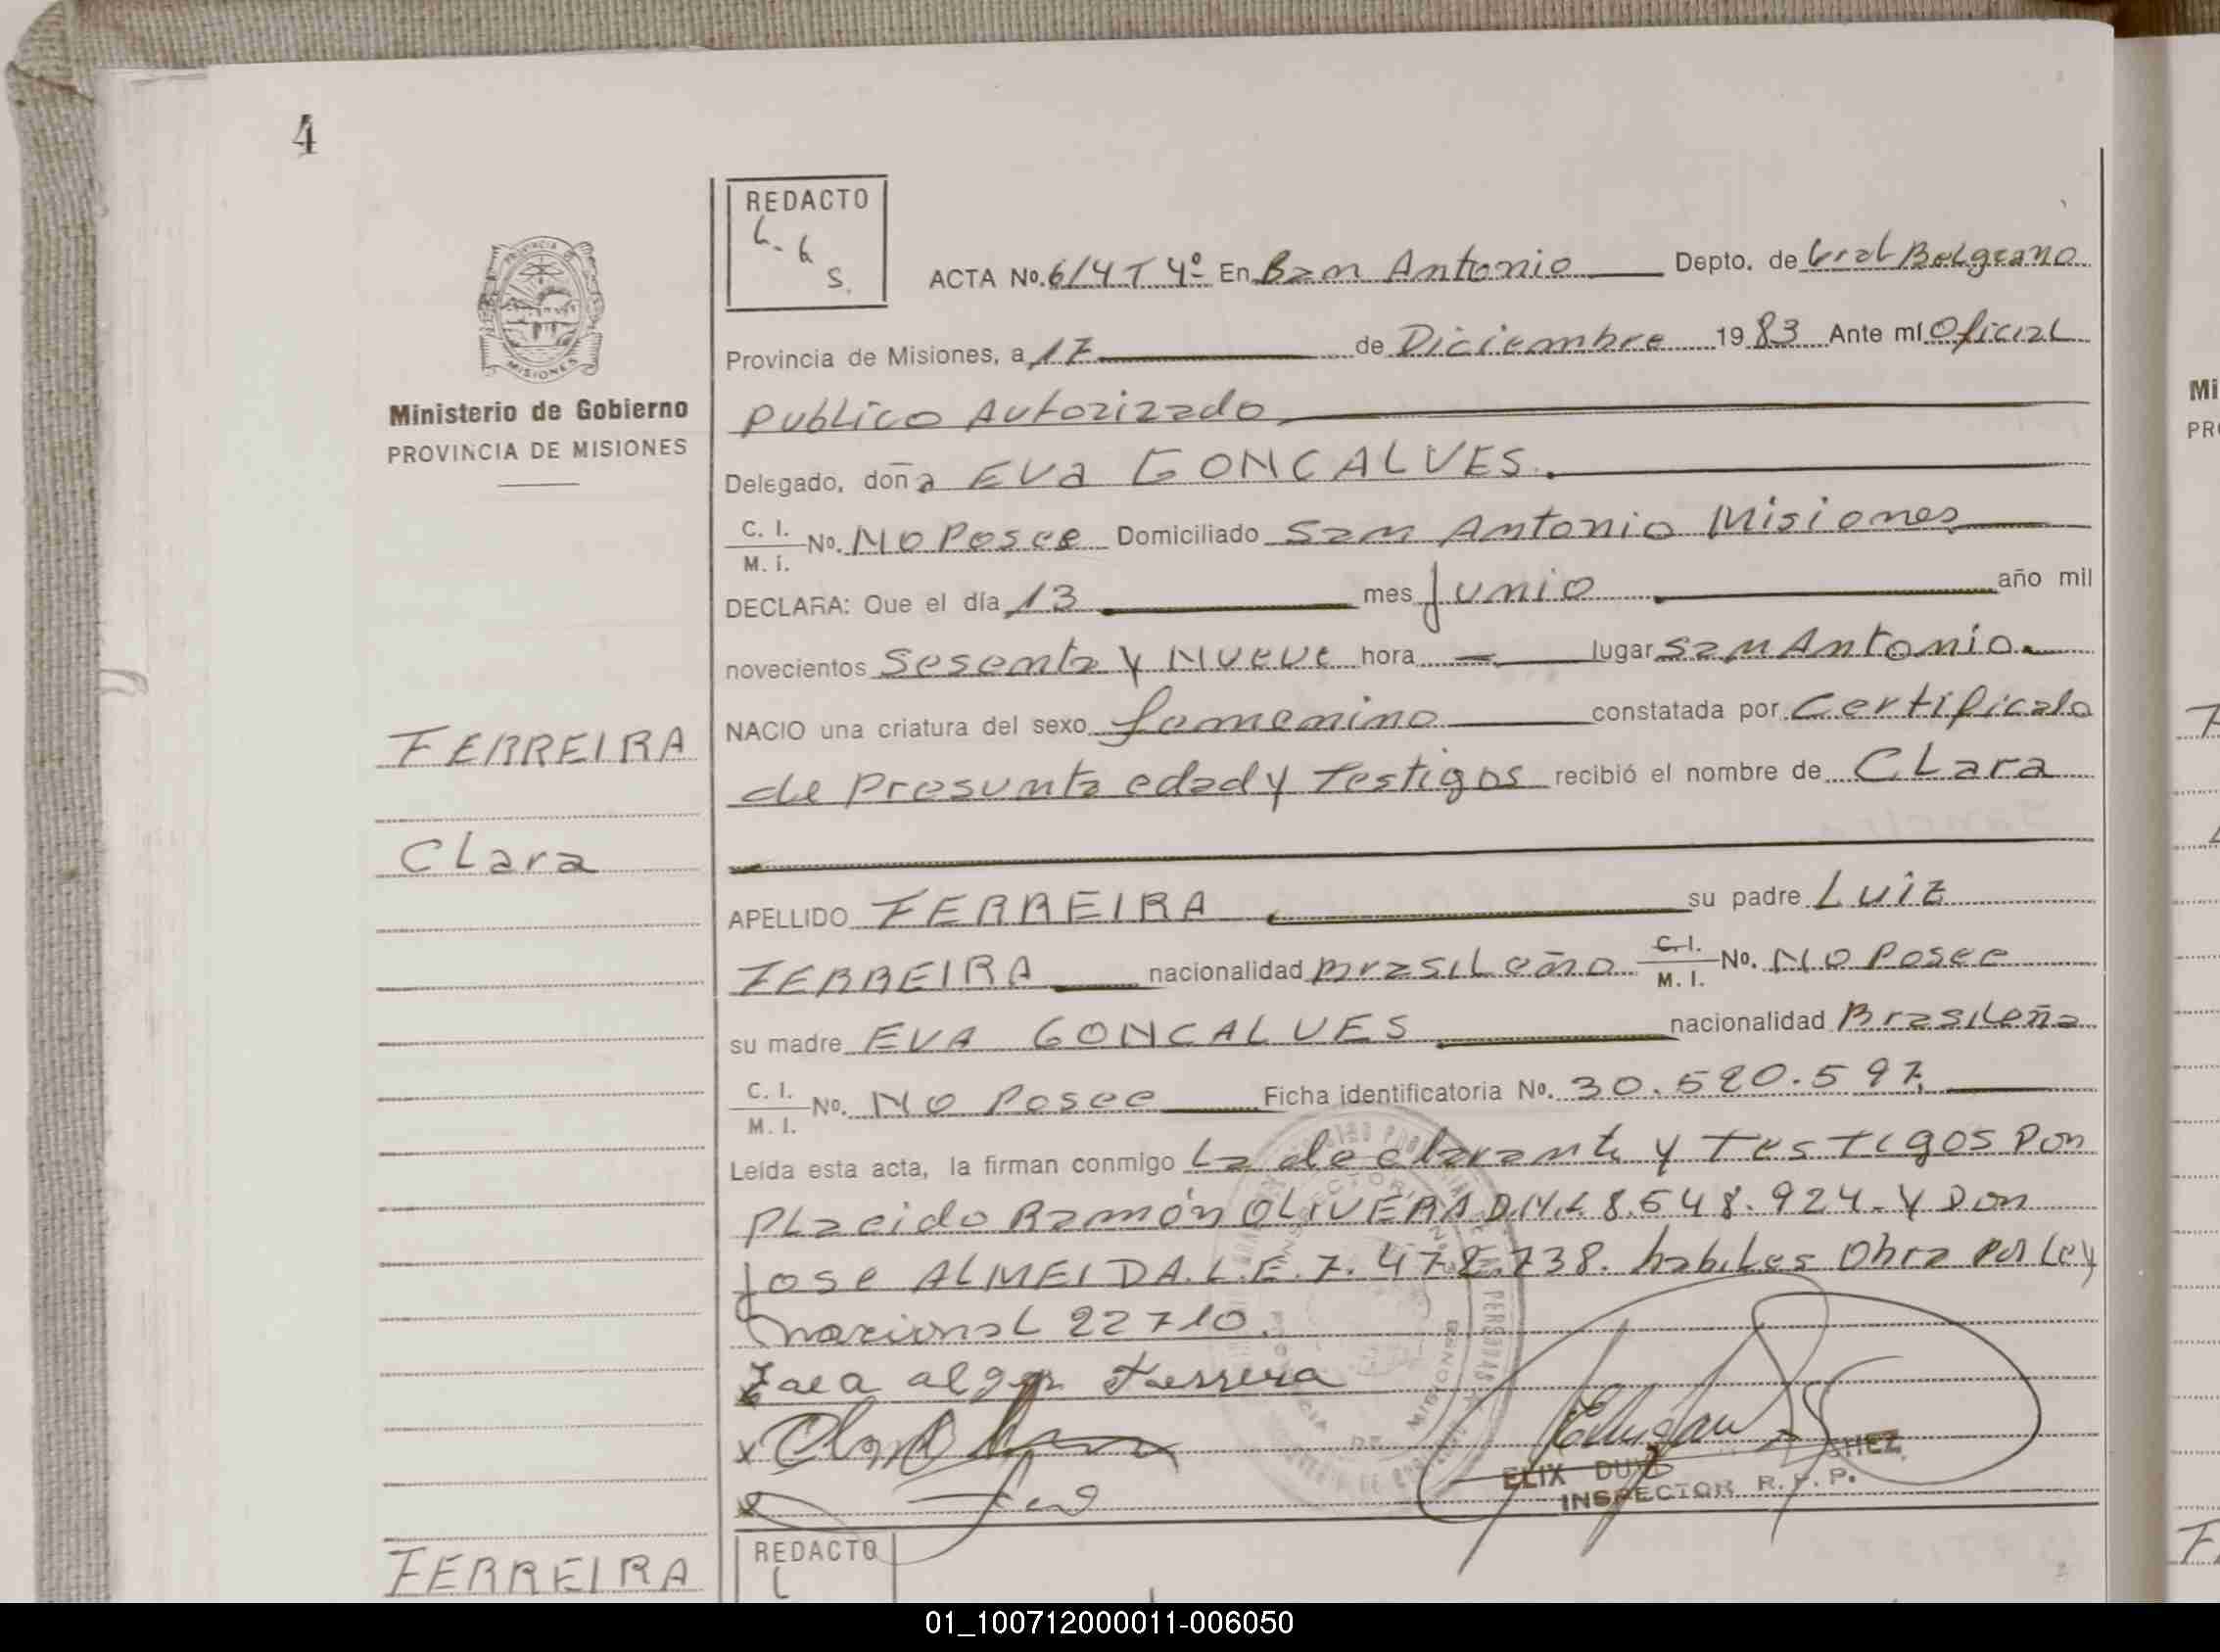 4
REDACTO
L. G
S.
ACTA No. 614 T 4º En San Antonio Depto. de Gral Belgrano
Provincia de Misiones, a 17 de Diciembre 1983 Ante mí Oficial
Publico Autorizado
Delegado, doña Eva GONCALVES.
C. I.
M. I. No. No Posee Domiciliado San Antonio Misiones
DECLARA: Que el día 13 mes Junio año mil
novecientos Sesenta y Nueve hora — lugar San Antonio.
NACIO una criatura del sexo femenino constatada por Certificado
de Presunta edad y Testigos recibió el nombre de Clara
APELLIDO FERREIRA su padre Luiz
FERREIRA nacionalidad Brasileño C. I.
M. I. No. No Posee
su madre EVA GONCALVES nacionalidad Brasileña
C. I.
M. I. No. No Posee Ficha identificatoria No. 30.520.597.
Leída esta acta, la firman conmigo La declarante y Testigos Don
Placido Ramón OLIVERA D.N.I. 8.548.924. y Don
Jose ALMEIDA. L.E. 7.472.738. habiles Obra por Ley
nacional 22710.
INSPECTOR R.P.P.
PROVINCIA
MISIONES
Ministerio de Gobierno
PROVINCIA DE MISIONES
FERREIRA
Clara
FERREIRA
REDACTO
L
Mi
PR
01_100712000011-006050